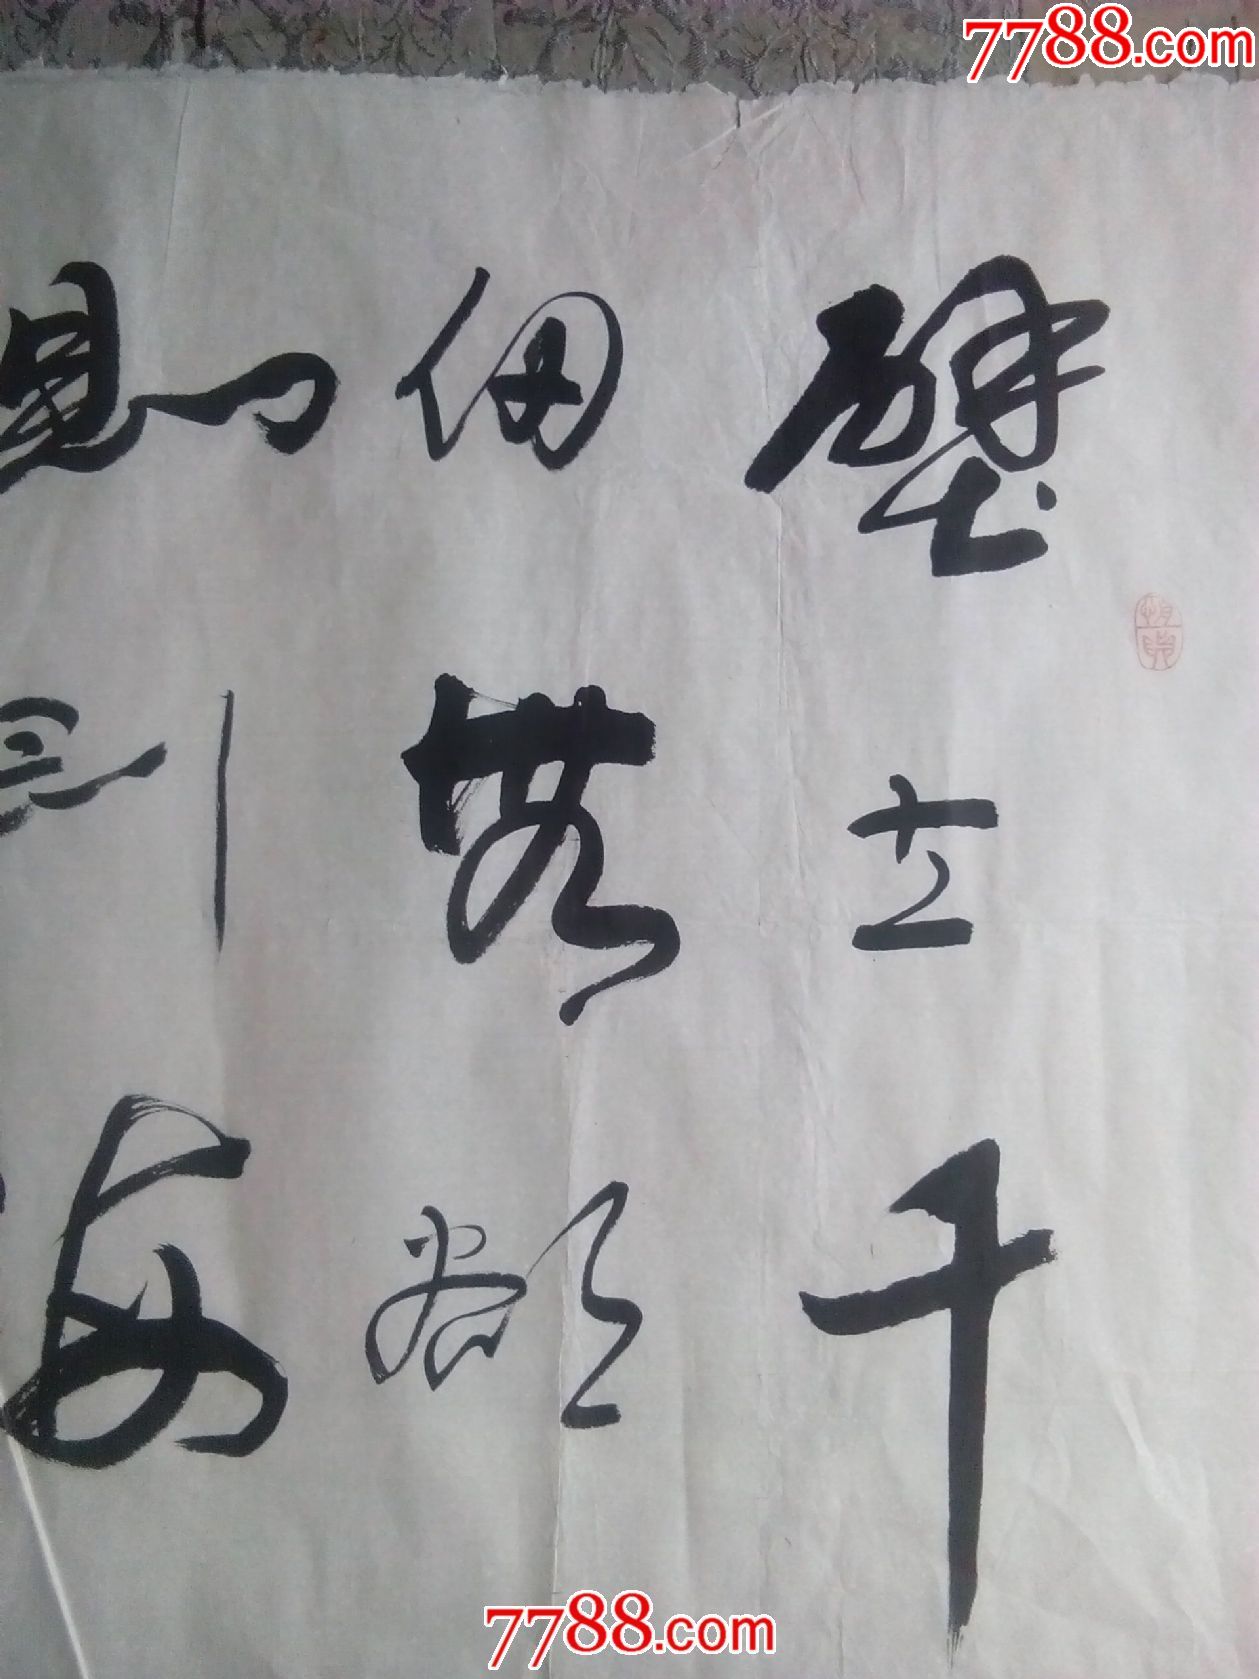 7788.com
壁立千
仞無欲
則剛
7788.com